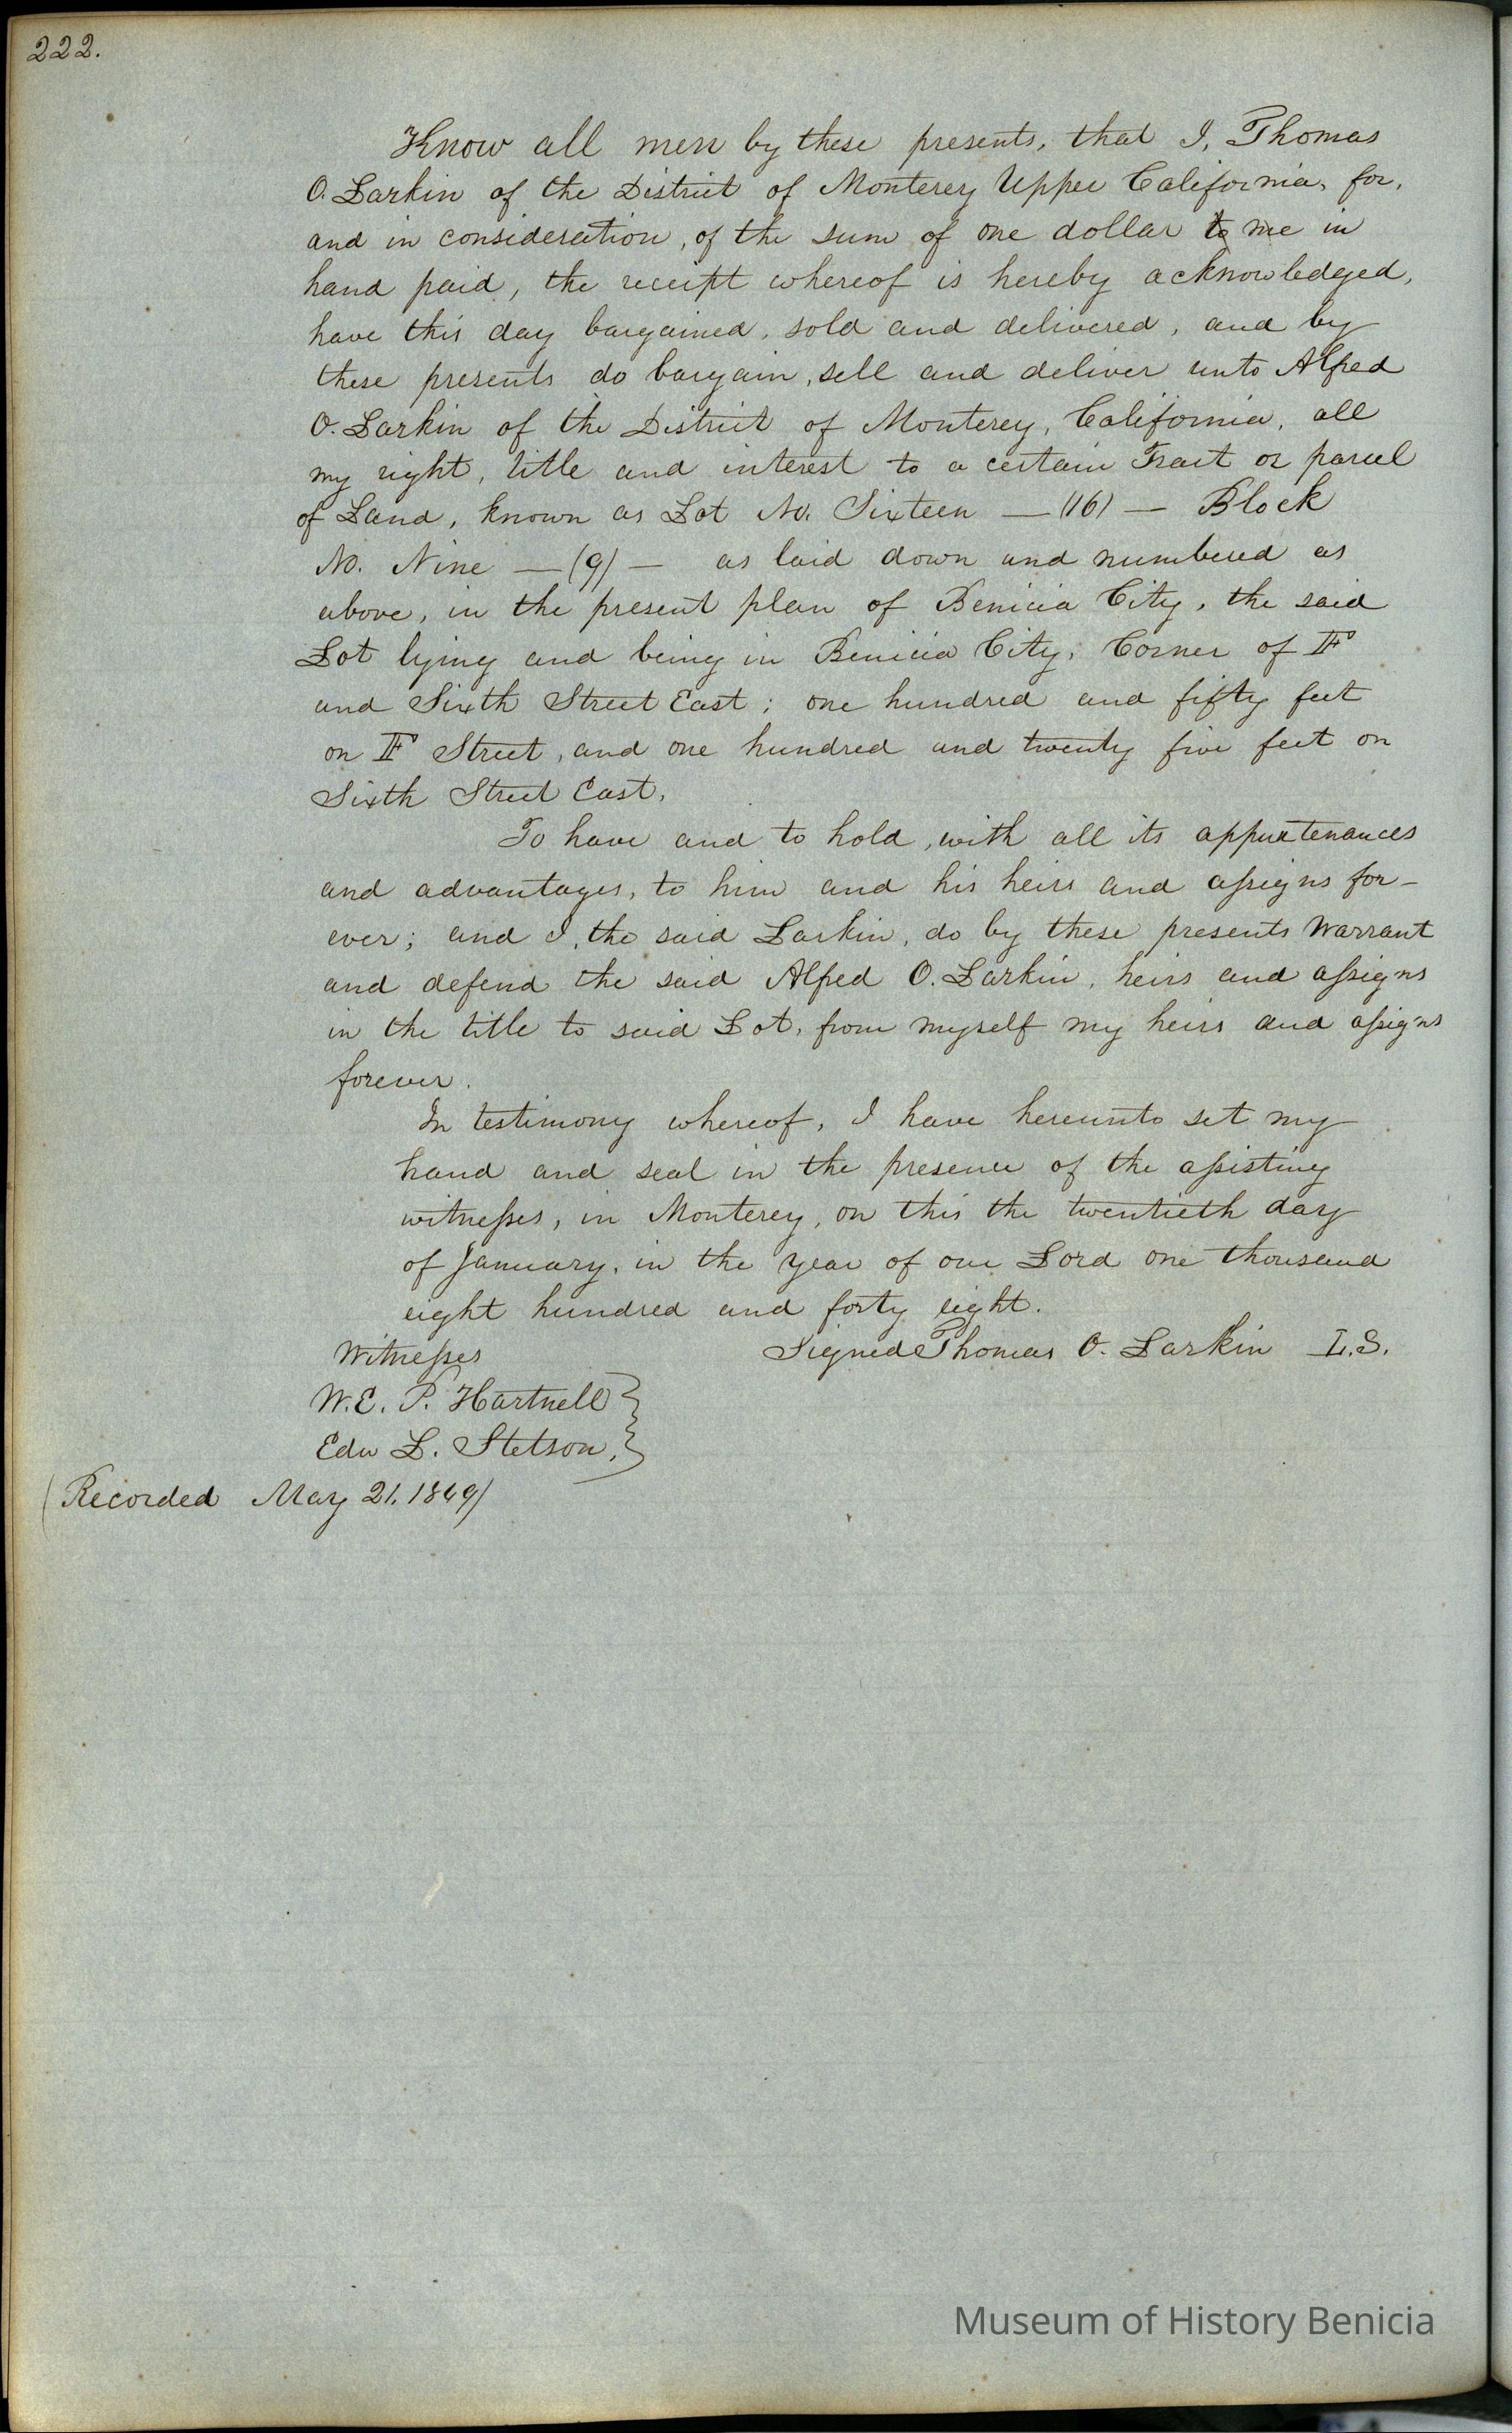 222.
Know all men by these presents, that I, Thomas
O. Larkin of the District of Monterey Upper California, for,
and in consideration, of the sum of one dollar to me in
hand paid, the receipt whereof is hereby acknowledged,
have this day bargained, sold and delivered, and by
these presents do bargain, sell and deliver unto Alfred
O. Larkin of the District of Monterey, California, all
my right, title and interest to a certain Tract or parcel
of Land, known as Lot No. Sixteen — (16) — Block
No. Nine — (9) — as laid down and numbered as
above, in the present plan of Benicia City, the said
Lot lying and being in Benicia City, Corner of F
and Sixth Street East; one hundred and fifty feet
on F Street, and one hundred and twenty five feet on
Sixth Street East.
To have and to hold, with all its appurtenances
and advantages, to him and his heirs and aſsigns for-
ever; and I, the said Larkin, do by these presents Warrant
and defend the said Alfred O. Larkin, heirs and aſsigns
in the title to said Lot, from myself my heirs and aſsigns
forever.
In testimony whereof, I have hereunto set my
hand and seal in the presence of the aſsisting
witneſses, in Monterey, on this the twentieth day
of January, in the year of our Lord one thousand
eight hundred and forty eight.
Witneſses Signed Thomas O. Larkin L.S.
W.E. P. Hartnell }
Edw L. Stetson, }
(Recorded May 21. 1849)
Museum of History Benicia